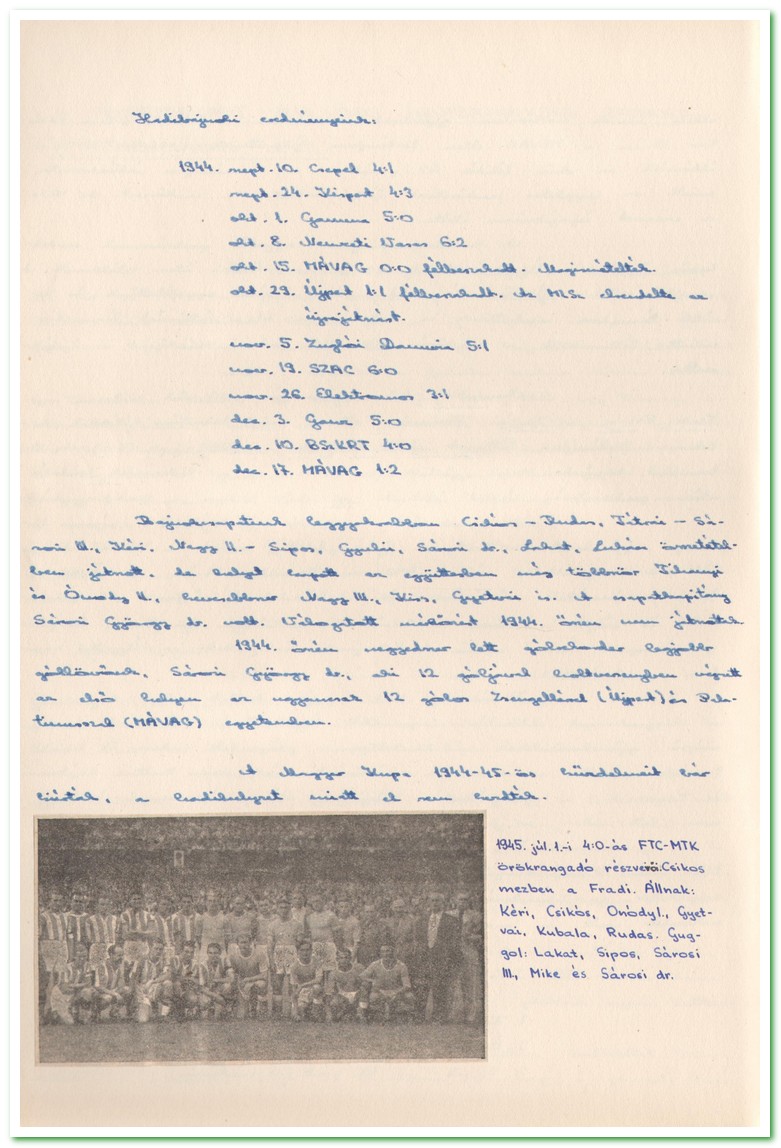 Hadibajnoki eredményeink:
1944. szept. 10. Csepel 4:1
szept. 24. Kispest 4:3
okt. 1. Gamma 5:0
okt. 8. Nemzeti Vasas 6:2
okt. 15. MÁVAG 0:0 félbeszakadt. Megismételték.
okt. 29. Újpest 1:1 félbeszakadt. Az MLSz elrendelte az
újrajátszást.
nov. 5. Zuglói Danuvia 5:1
nov. 19. SZAC 6:0
nov. 26. Elektromos 3:1
dec. 3. Ganz 5:0
dec. 10. BSzKRT 4:0
dec. 17. MÁVAG 1:2
Bajnokcsapatunk leggyakrabban Csikós - Rudas, Pátrai - Sá-
rosi III., Kéri, Nagy II. - Sipos, Gyulai, Sárosi dr., Lakat, Lukács összetétel-
ben játszott, de helyet kapott az együttesben még többször Tihanyi
és Ónody II., kevesebbszer Nagy III., Kiss, Gyetvai is. A csapatkapitány
Sárosi György dr. volt. Válogatott mérkőzést 1944. őszén nem játszottak.
1944. őszén negyedszer lett gólszerző legjobb
góllövőnk, Sárosi György dr., aki 12 góljával holtversenyben végzett
az első helyen az ugyancsak 12 gólos Zsengellérrel (Újpest) és
(MÁVAG) egyetemben.
A Magyar Kupa 1944-45-ös küzdelmeit bár
kiírták, a hadihelyzet miatt el nem kezdték.
1945. júl. 1.-i 4:0-ás FTC-MTK
örökrangadó részvevői. Csikos
mezben a Fradi. Állnak:
Kéri, Csikós, Onódy I., Gyet-
vai, Kubala, Rudas. Gug-
gol: Lakat, Sipos, Sárosi
III., Mike és Sárosi dr.